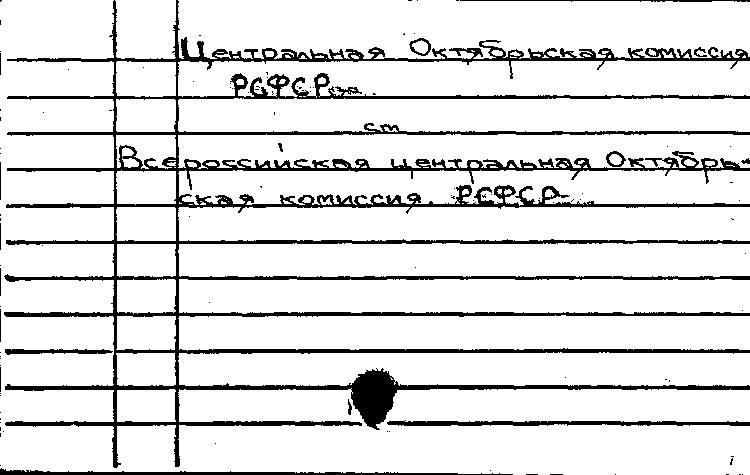 Центральная Октябрьская комиссия
РСФСР
см
Всероссийская центральная Октябрь-
ская комиссия. РСФСР